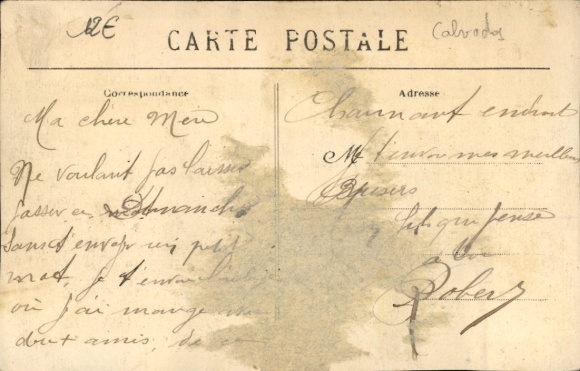 12€
Calvados
CARTE POSTALE
Correspondance
Adresse
Ma chère Mère
Ne voulant pas laisser
passer ce Dimanche
sans t'envoyer un petit
mot, je t'envoie
où j'ai mangé
deux amis, de ce
Charmant endroit
Je t'envoie mes meilleurs
Baisers
fils qui pense
a toi
Robert